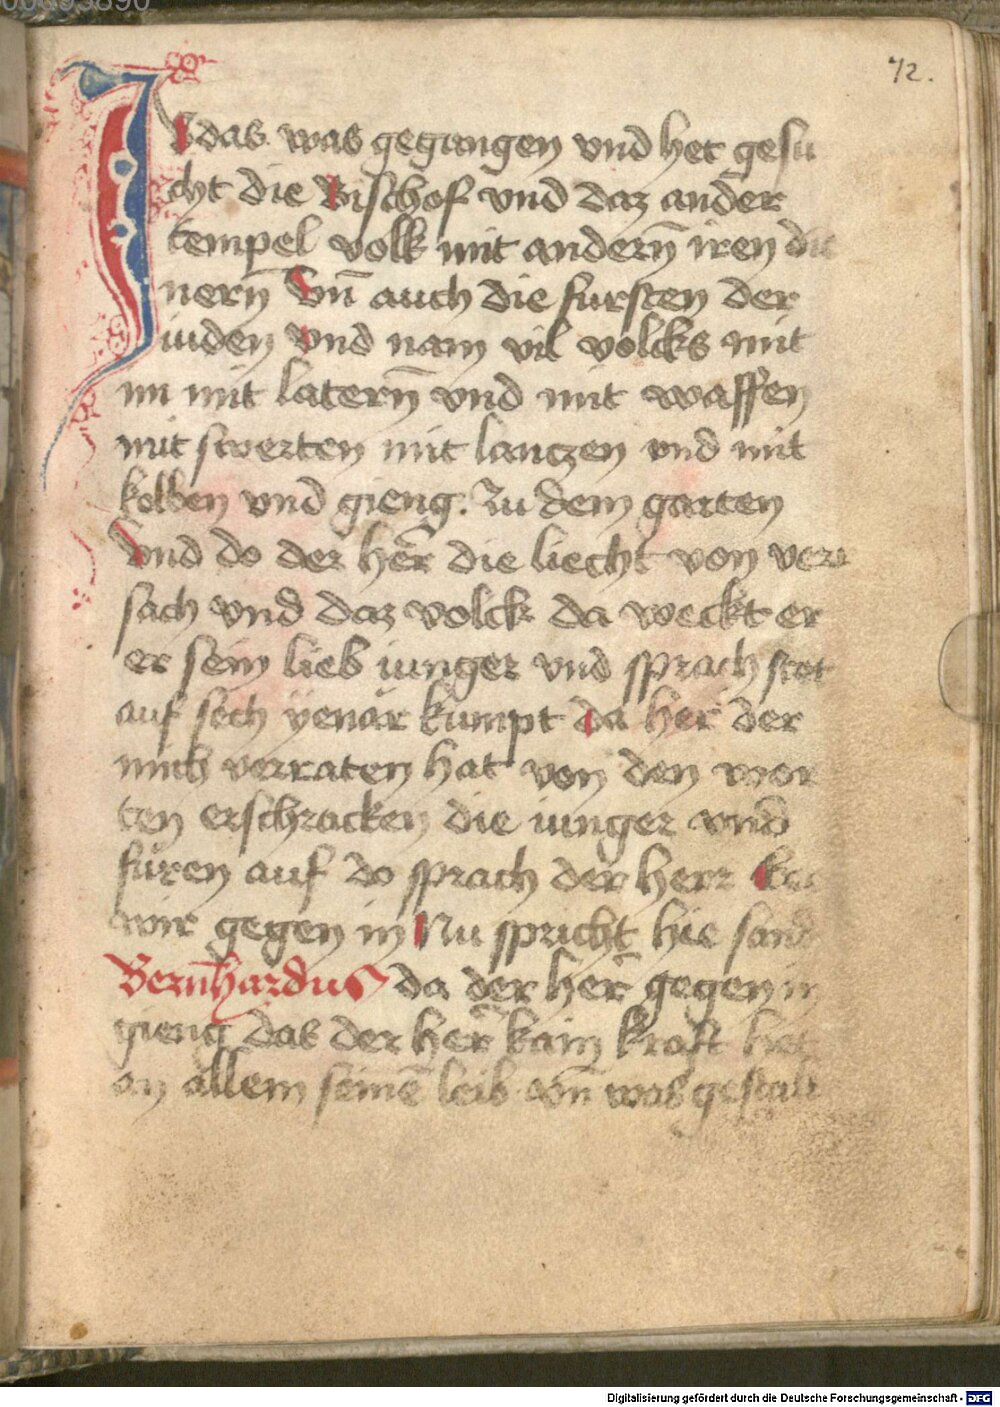 72.
Jvdas was gegangen vnd het gesu
cht die Bischof vnd daz ander
tempel volk mit andern̄ iren die
nern̄ Vn̄ auch die fursten der
iuden vnd nam vil volcks mit
im mit latern̄ vnd mit waffen
mit swerten mit lanczen vnd mit
kolben vnd gieng. zu dem garten
Vnd do der her̄ die liecht von verr
sach vnd daz volck da weckt er
er sein lieb iunger vnd sprach stet
auf sech yenar kumpt da her der
mich verraten hat von den wor
ten erschracken die iunger vnd
furen auf do sprach der herr
wir gegen in Nu spricht hie sand
Bern̄hardus da der her̄ gegen in
gieng das der her̄ kain kraft het
an allem seinē leib vn̄ was gestalt
Digitalisierung gefördert durch die Deutsche Forschungsgemeinschaft - DFG